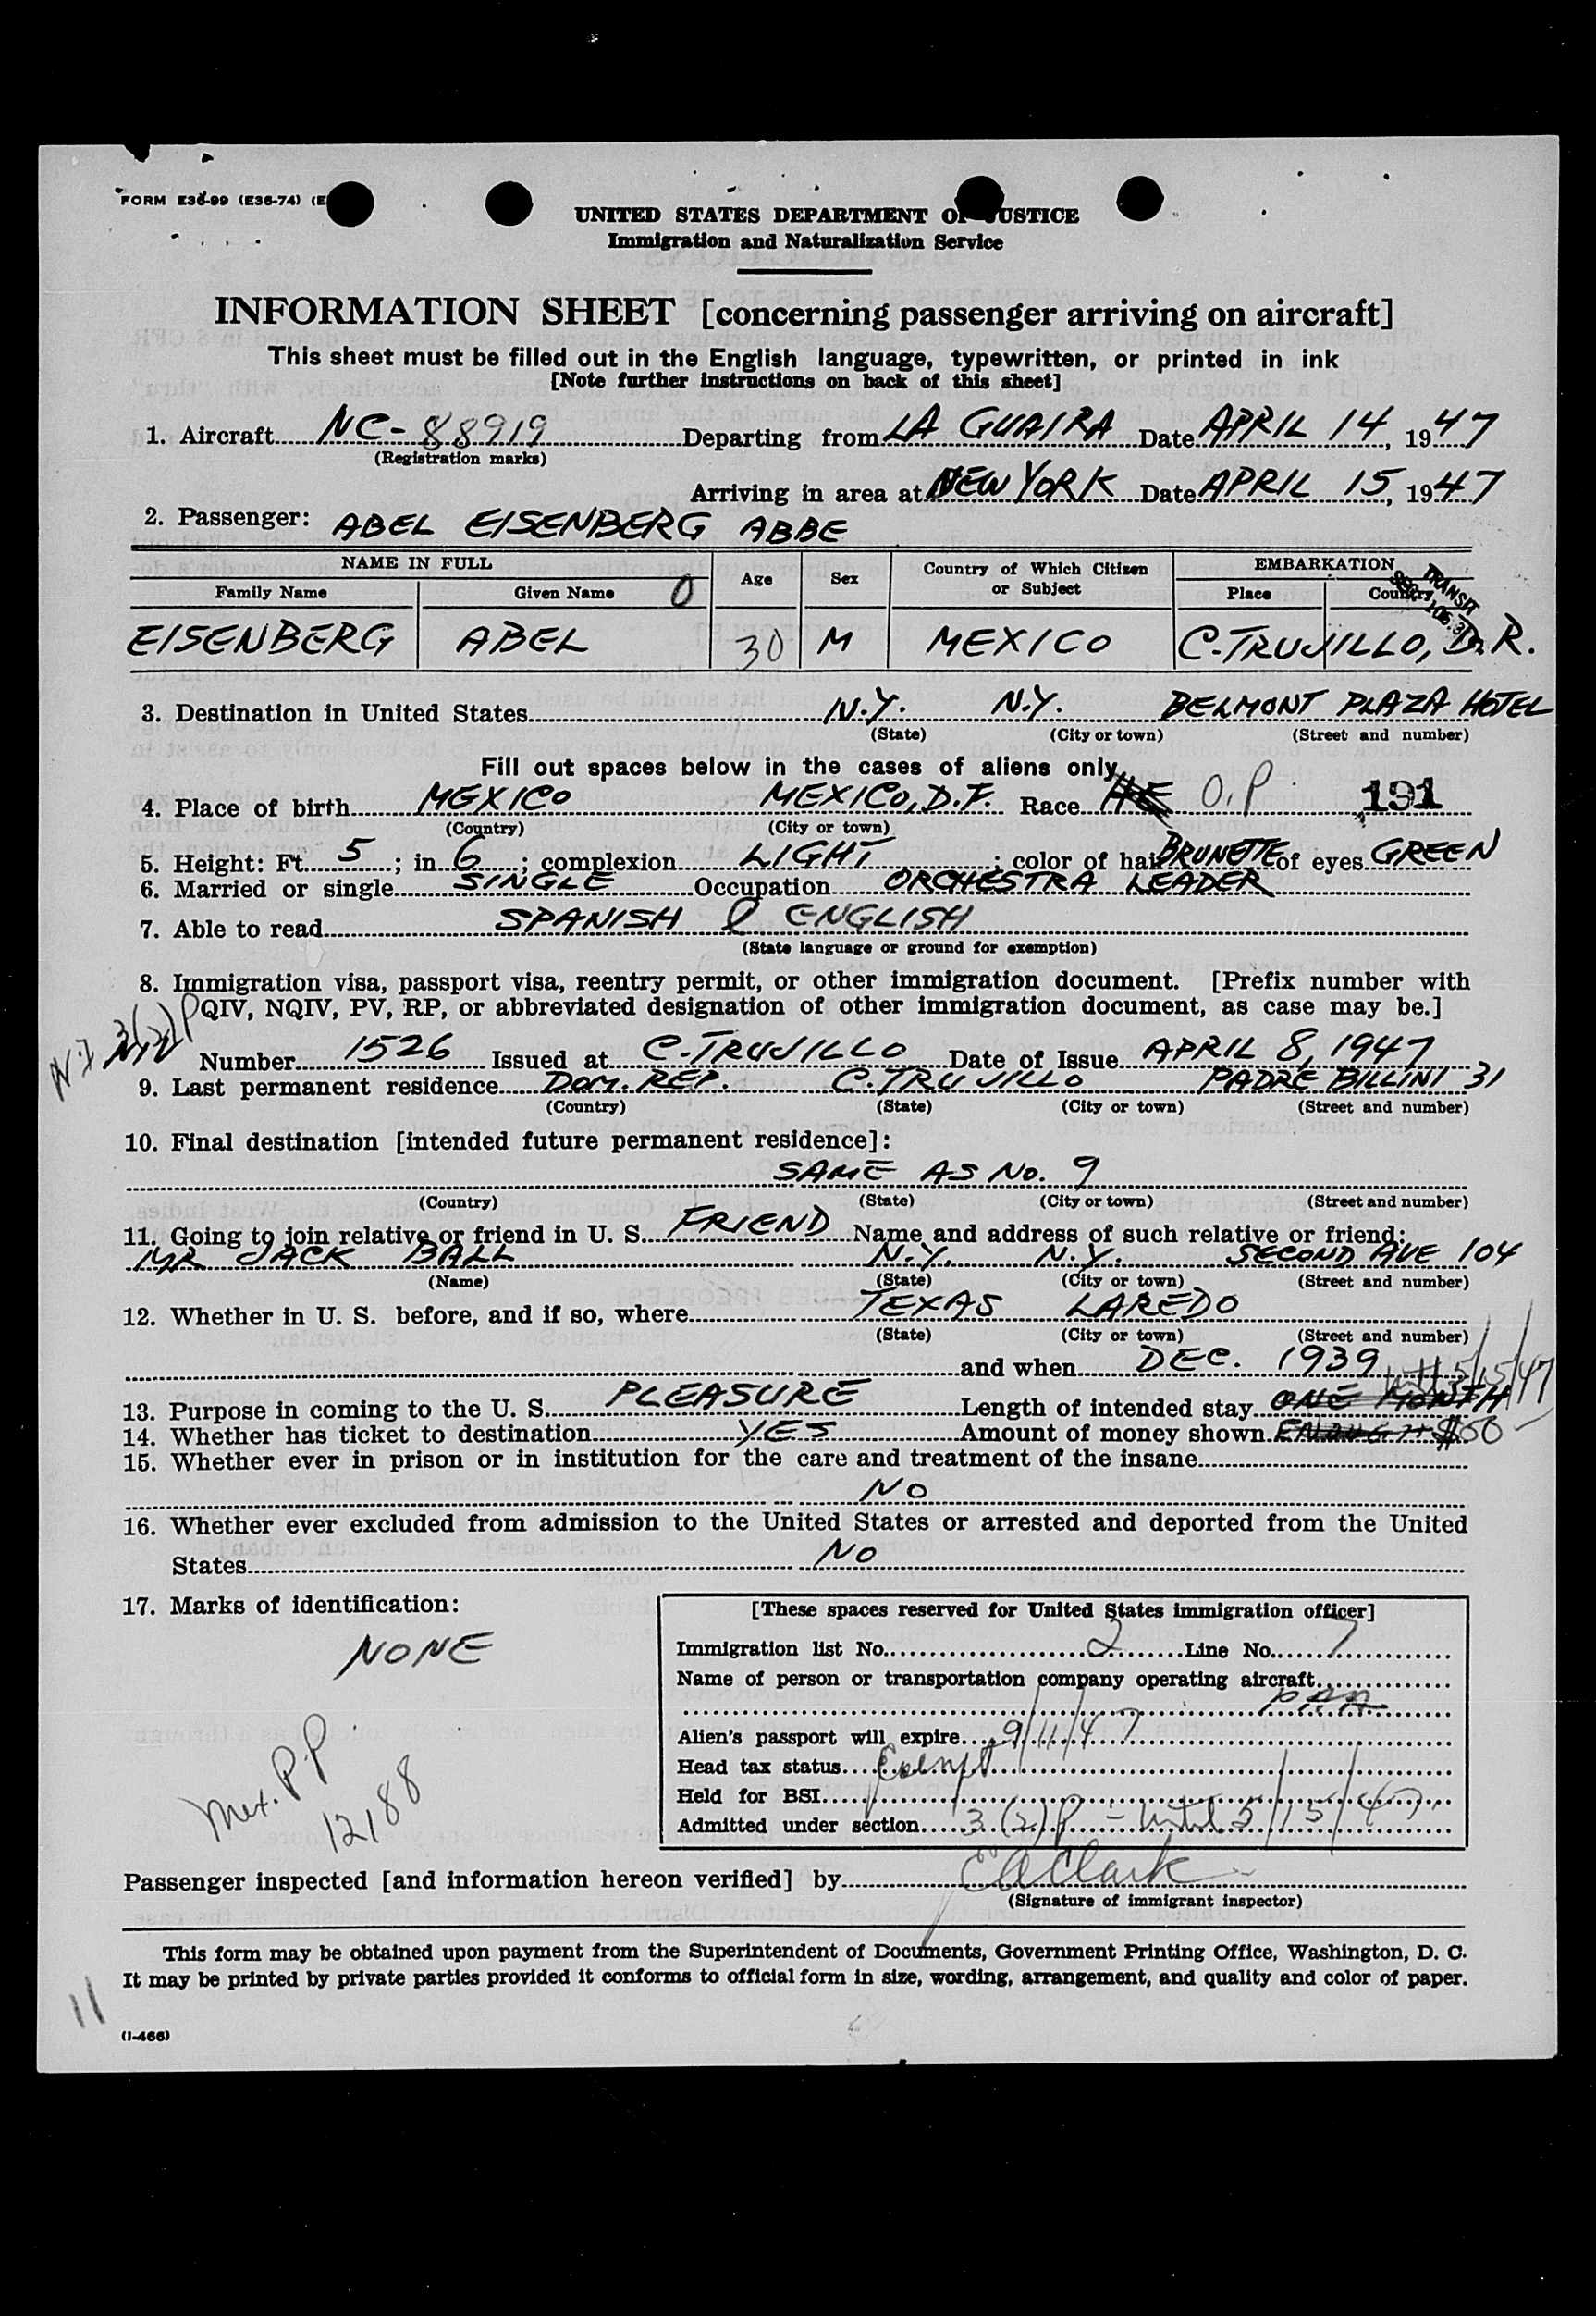 FORM E36-99 (E36-74) (E
UNITED STATES DEPARTMENT OF JUSTICE
Immigration and Naturalization Service
INFORMATION SHEET [concerning passenger arriving on aircraft]
This sheet must be filled out in the English language, typewritten, or printed in ink
[Note further instructions on back of this sheet]
1. Aircraft NC-88919 Departing from LA GUAIRA Date APRIL 14, 1947
(Registration marks)
Arriving in area at NEW YORK Date APRIL 15, 1947
2. Passenger: ABEL EISENBERG ABBE
NAME IN FULL Age Sex Country of Which Citizen or Subject EMBARKATION
Family Name Given Name 0 Place Country
TRANSIT
EISENBERG ABEL 30 M MEXICO C. TRUJILLO, D.R.
3. Destination in United States N.Y. N.Y. BELMONT PLAZA HOTEL
(State) (City or town) (Street and number)
Fill out spaces below in the cases of aliens only
4. Place of birth MEXICO MEXICO, D.F. Race HE O.P. 191
(Country) (City or town)
5. Height: Ft. 5; in. 6; complexion LIGHT; color of hair BRUNETTE of eyes GREEN
6. Married or single SINGLE Occupation ORCHESTRA LEADER
7. Able to read SPANISH & ENGLISH
(State language or ground for exemption)
8. Immigration visa, passport visa, reentry permit, or other immigration document. [Prefix number with
QIV, NQIV, PV, RP, or abbreviated designation of other immigration document, as case may be.]
3(2)P
Number 1526 Issued at C. TRUJILLO Date of Issue APRIL 8, 1947
9. Last permanent residence DOM. REP. C. TRUJILLO PADRE BILLINI 31
(Country) (State) (City or town) (Street and number)
10. Final destination [intended future permanent residence]:
SAME AS No. 9
(Country) (State) (City or town) (Street and number)
11. Going to join relative or friend in U. S. FRIEND Name and address of such relative or friend:
MR JACK BALL N.Y. N.Y. SECOND AVE 104
(Name) (State) (City or town) (Street and number)
12. Whether in U. S. before, and if so, where TEXAS LAREDO
(State) (City or town) (Street and number)
and when DEC. 1939
until 5/15/47
13. Purpose in coming to the U. S. PLEASURE Length of intended stay ONE MONTH
14. Whether has ticket to destination YES Amount of money shown ENOUGH $50
15. Whether ever in prison or in institution for the care and treatment of the insane
NO
16. Whether ever excluded from admission to the United States or arrested and deported from the United
States NO
17. Marks of identification:
NONE
Mex. P.P.
12188
[These spaces reserved for United States immigration officer]
Immigration list No. 2 Line No. 7
Name of person or transportation company operating aircraft
PAA
Alien's passport will expire 9/11/47
Head tax status Exempt
Held for BSI
Admitted under section 3(2)P - Until 5/15/47
Passenger inspected [and information hereon verified] by E A Clark
(Signature of immigrant inspector)
This form may be obtained upon payment from the Superintendent of Documents, Government Printing Office, Washington, D. C.
It may be printed by private parties provided it conforms to official form in size, wording, arrangement, and quality and color of paper.
11
(I-466)